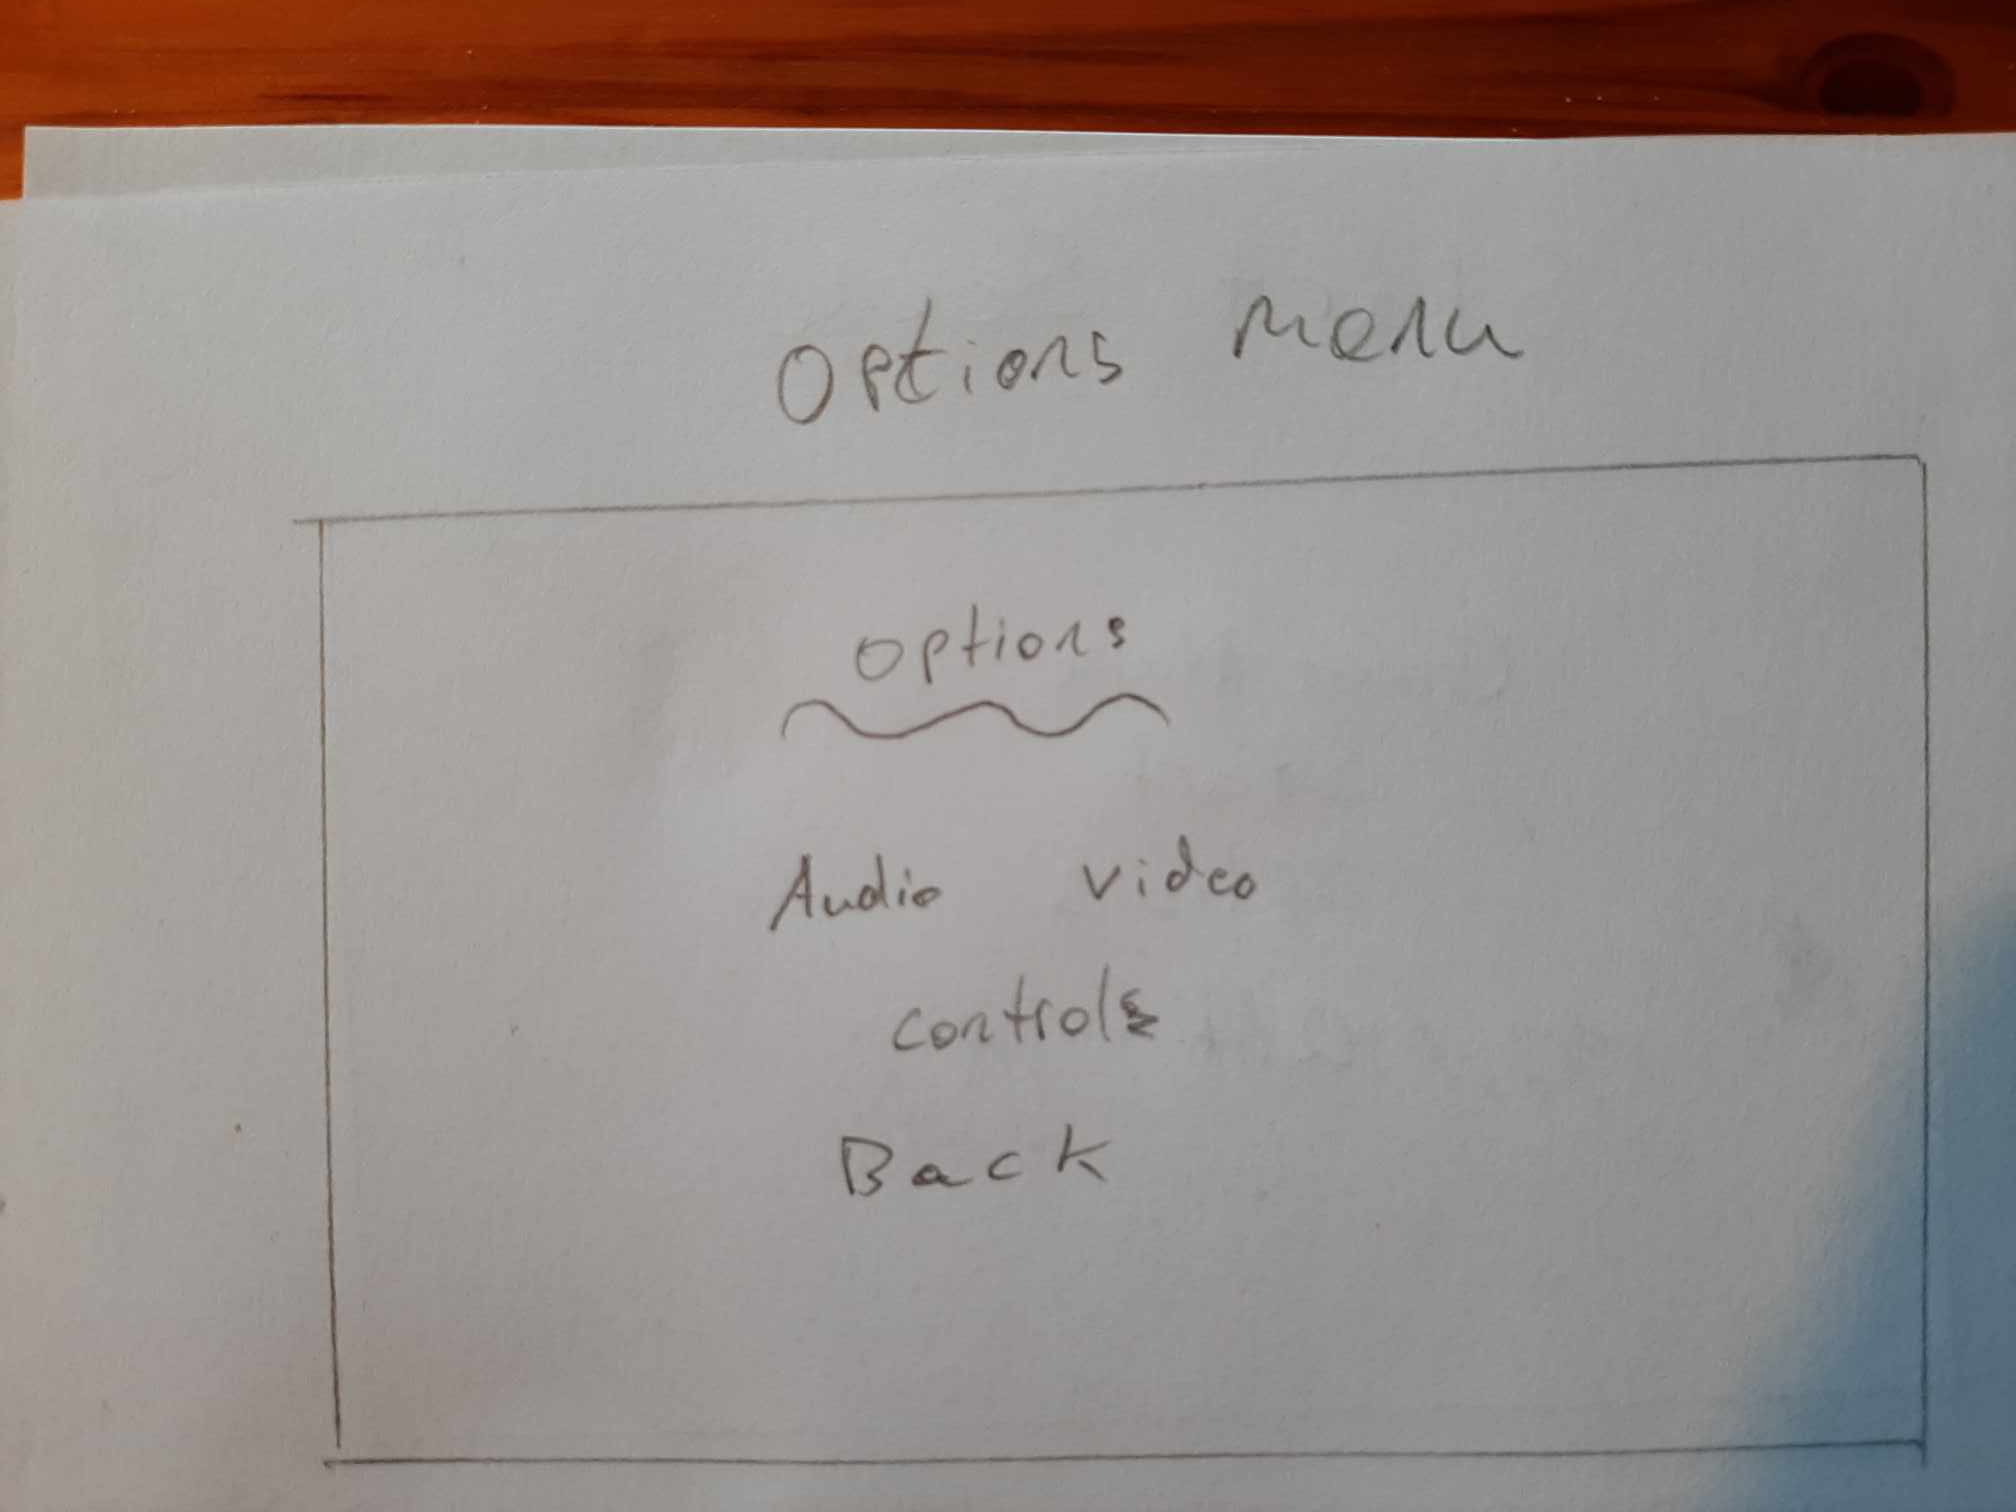 Options Menu
Options
Audio Video
Controls
Back